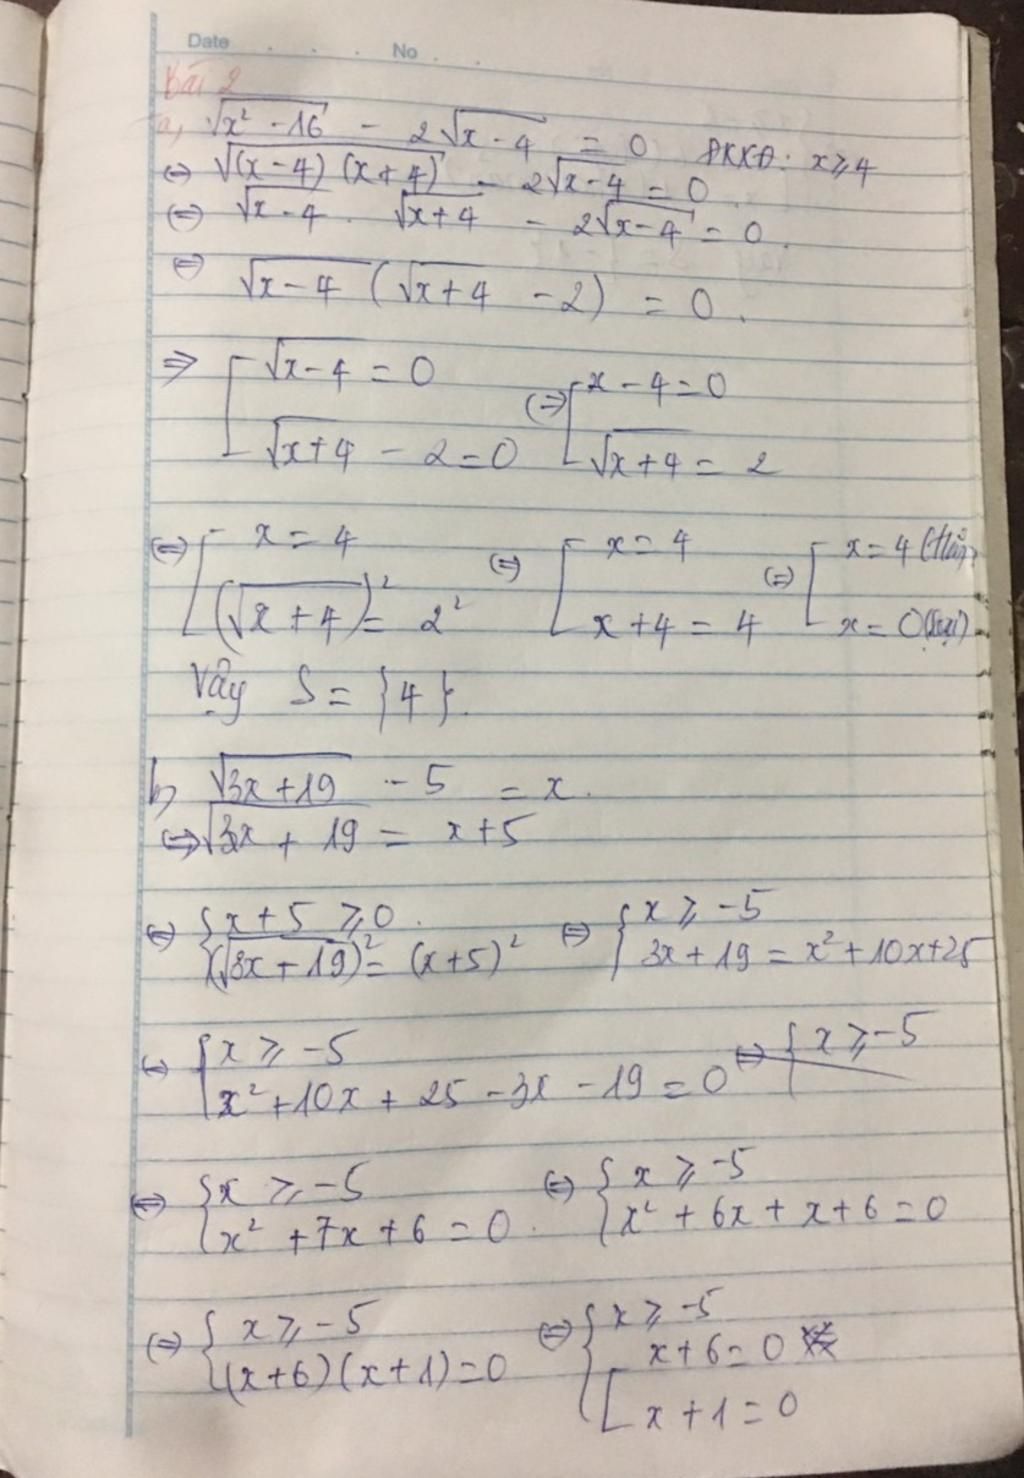 Date . . . No . .
Bài 2
a, √(x² - 16) - 2√(x - 4) = 0 ĐKXĐ: x ≥ 4
⇔ √((x - 4)(x + 4)) - 2√(x - 4) = 0
⇔ √(x - 4) . √(x + 4) - 2√(x - 4) = 0.
⇔ √(x - 4) (√(x + 4) - 2) = 0.
⇒ [ √(x - 4) = 0 ⇔ [ x - 4 = 0
√(x + 4) - 2 = 0 √(x + 4) = 2
⇔ [ x = 4 ⇔ [ x = 4 ⇔ [ x = 4 (thỏa)
(√(x + 4))² = 2² x + 4 = 4 x = 0 (loại)
Vậy S = {4}.
b, √(3x + 19) - 5 = x.
⇔ √(3x + 19) = x + 5
⇔ { x + 5 ≥ 0. ⇔ { x ≥ -5
(√(3x + 19))² = (x + 5)² 3x + 19 = x² + 10x + 25
⇔ { x ≥ -5 ⇔ { x ≥ -5
x² + 10x + 25 - 3x - 19 = 0
⇔ { x ≥ -5 ⇔ { x ≥ -5
x² + 7x + 6 = 0. x² + 6x + x + 6 = 0
⇔ { x ≥ -5 ⇔ { x ≥ -5
(x + 6)(x + 1) = 0 [ x + 6 = 0
x + 1 = 0